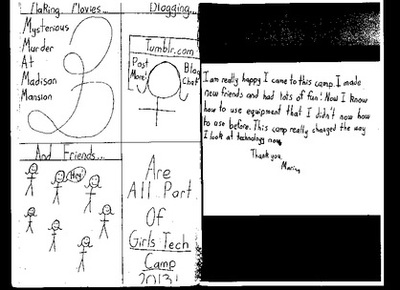 Making Movies...
Mysterious
Murder
At
Madison
Mansion
Blogging...
Tumblr.com
Post
More!
Blog
Chat
And Friends...
Hey!
Are
All Part
Of
Girls Tech
Camp
2013!
I am really happy I came to this camp. I made
new friends and had lots of fun! Now I know
how to use equipment that I didn't now how
to use before. This camp really changed the way
I look at technology now.
Thank you